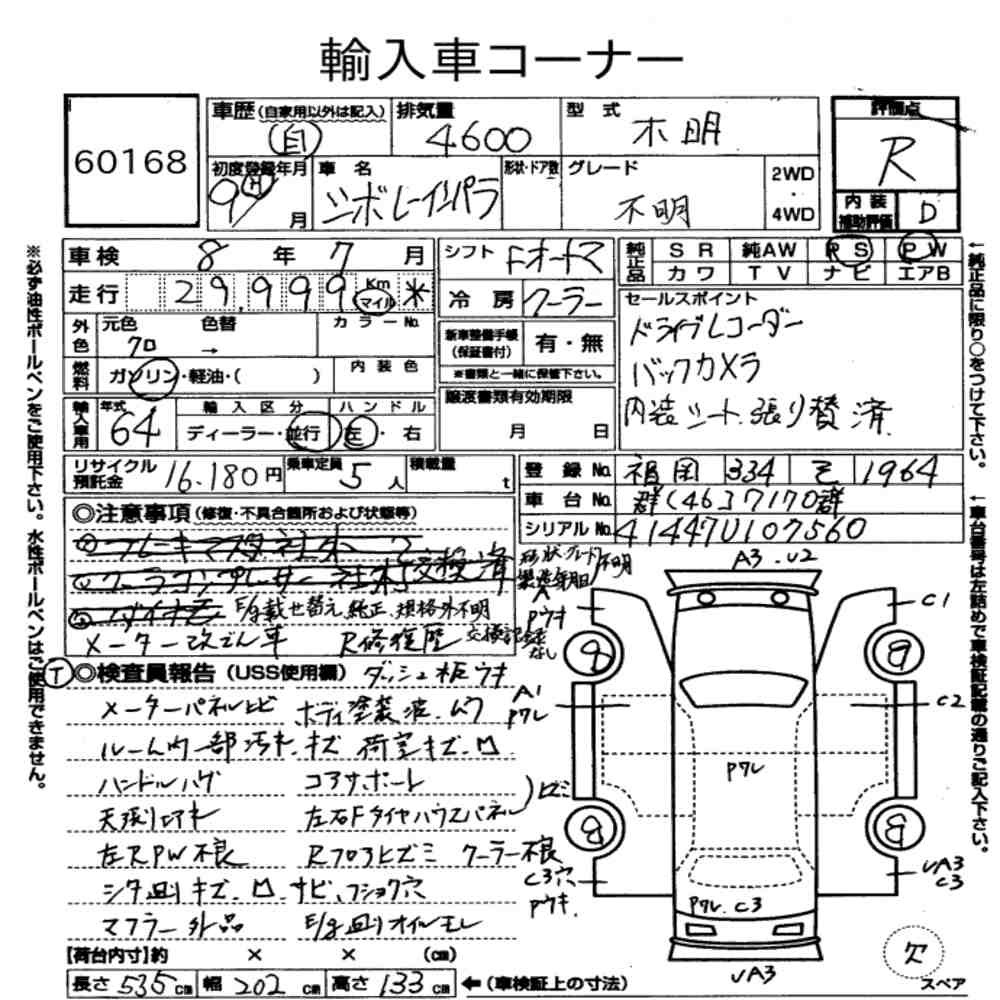 輸入車コーナー
60168
車歴(自家用以外は記入) 自
排気量 4600
型式 不明
評価点 R
初度登録年月 9年 月
車名 シボレーインパラ
形状・ドア数
グレード 不明
2WD・4WD
内装補助評価 D
車検 8年7月
シフト Fオートマ
純正品 SR 純AW PS PW
カワ TV ナビ エアB
走行 29,999 Km マイル *
冷房 クーラー
セールスポイント
ドライブレコーダー
バックカメラ
内装シート張り替済
外色 元色 クロ 色替 → カラーNo.
新車整備手帳(保証書付) 有・無
※書類と一緒に保管下さい。
燃料 ガソリン・軽油・( ) 内装色
譲渡書類有効期限 月 日
輸入車用 年式 64 輸入区分 ディーラー・並行 ハンドル 左・右
リサイクル預託金 16,180円
乗車定員 5人
積載量 t
登録No. 福岡 334 1964
車台No. 群(46)7170群
シリアルNo. 41447U107560
◎注意事項(修復・不具合箇所および状態等)
E/g載せ替え 純正、規格外不明
メーター改ざん車 R修復歴 交換記録なし
形状・グレード 製造年月日 不明
T ◎検査員報告(USS使用欄) ダッシュ板ウキ
メーターパネルヒビ ボディ塗装液、ムラ
ルーム内一部汚れキズ 荷室キズ、凹
ハンドルハゲ コアサポート
天張リヨゴレ 左右Fタイヤハウスパネル )ヒズミ
左RPW不良 Rフロアヒズミ クーラー不良
シタ廻りキズ、凹、サビ、フショク穴
マフラー外品 E/g廻りオイルモレ
【荷台内寸】約 × × (cm)
長さ535cm 幅202cm 高さ133cm ←(車検証上の寸法)
A3 . U2
A Pウキ
C1
9 9
A1 Pワレ
C2
Pワレ
8 8
C3穴 Pウキ
UA3 C3
Pワレ C3
UA3
欠 スペア
※必ず油性ボールペンをご使用下さい。水性ボールペンはご使用できません。
←純正品に限り○をつけて下さい。
←車台番号は左詰めで車検証記載の通りご記入下さい。